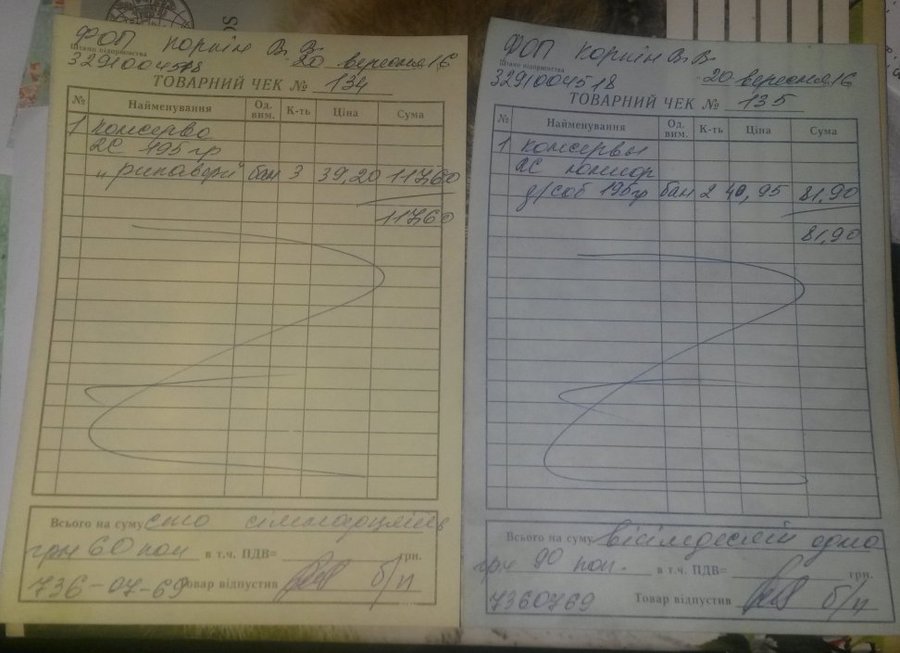 ФОП Коркін В. В.
Штамп підприємства
3291004518
20 вересня 16
ТОВАРНИЙ ЧЕК № 134
№ Найменування Од. вим. К-ть Ціна Сума
1 консерво
195 гр
бан 3 39,20 117,60
117,60
Всього на суму сто сімнадцять
грн 60 коп в т.ч. ПДВ= грн.
736-07-69 Товар відпустив б/п
ФОП Коркін В. В.
Штамп підприємства
3291004518
20 вересня 16
ТОВАРНИЙ ЧЕК № 135
№ Найменування Од. вим. К-ть Ціна Сума
1 консервы
д/соб 195гр бан 2 40,95 81,90
81,90
Всього на суму вісімдесят одна
грн 90 коп. в т.ч. ПДВ= грн.
7360769 Товар відпустив б/п